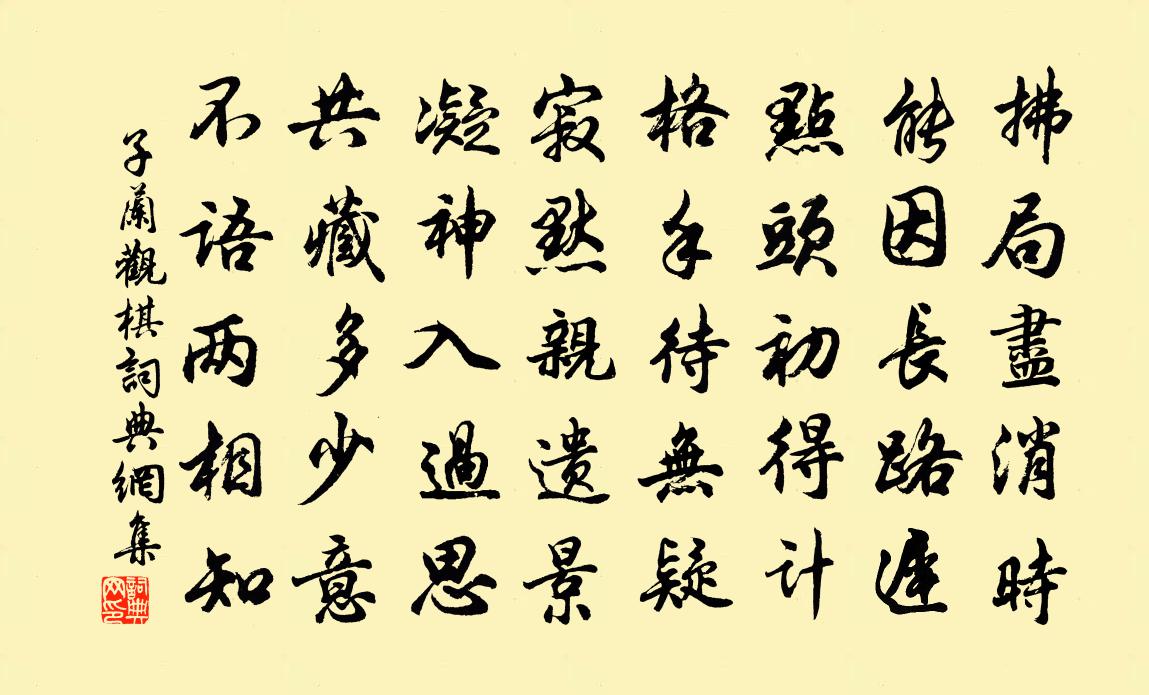 拂局盡消時
能因長路遲
點頭初得計
格手待無疑
寂默親遗景
凝神入過思
共藏多少意
不語两相知
子蘭觀棋詞典網集
詞典网印